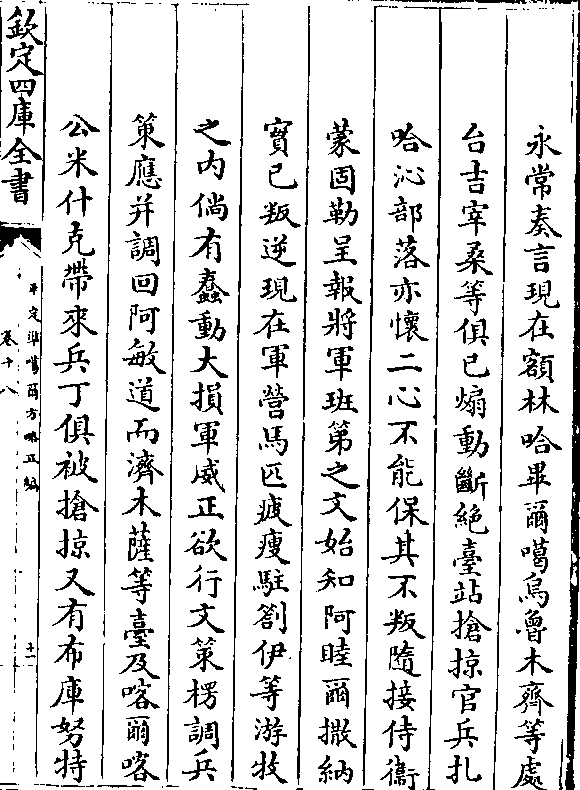 永常奏言現在額林哈畢爾噶烏魯木齊等處
台吉宰桑等俱已煽動斷絶臺站搶掠官兵扎
哈沁部落亦懷二心不能保其不叛隨接侍衛
蒙固勒呈報將軍班第之文始知阿睦爾撒納
實已叛逆現在軍營馬匹疲瘦駐劄伊等游牧
之内倘有蠢動大損軍威正欲行文策楞調兵
策應并調回阿敏道而濟木薩等臺及喀爾喀
公米什克帶來兵丁俱被搶掠又有布庫努特
欽定四庫全書
平定凖噶爾方略正編
卷十八
十一